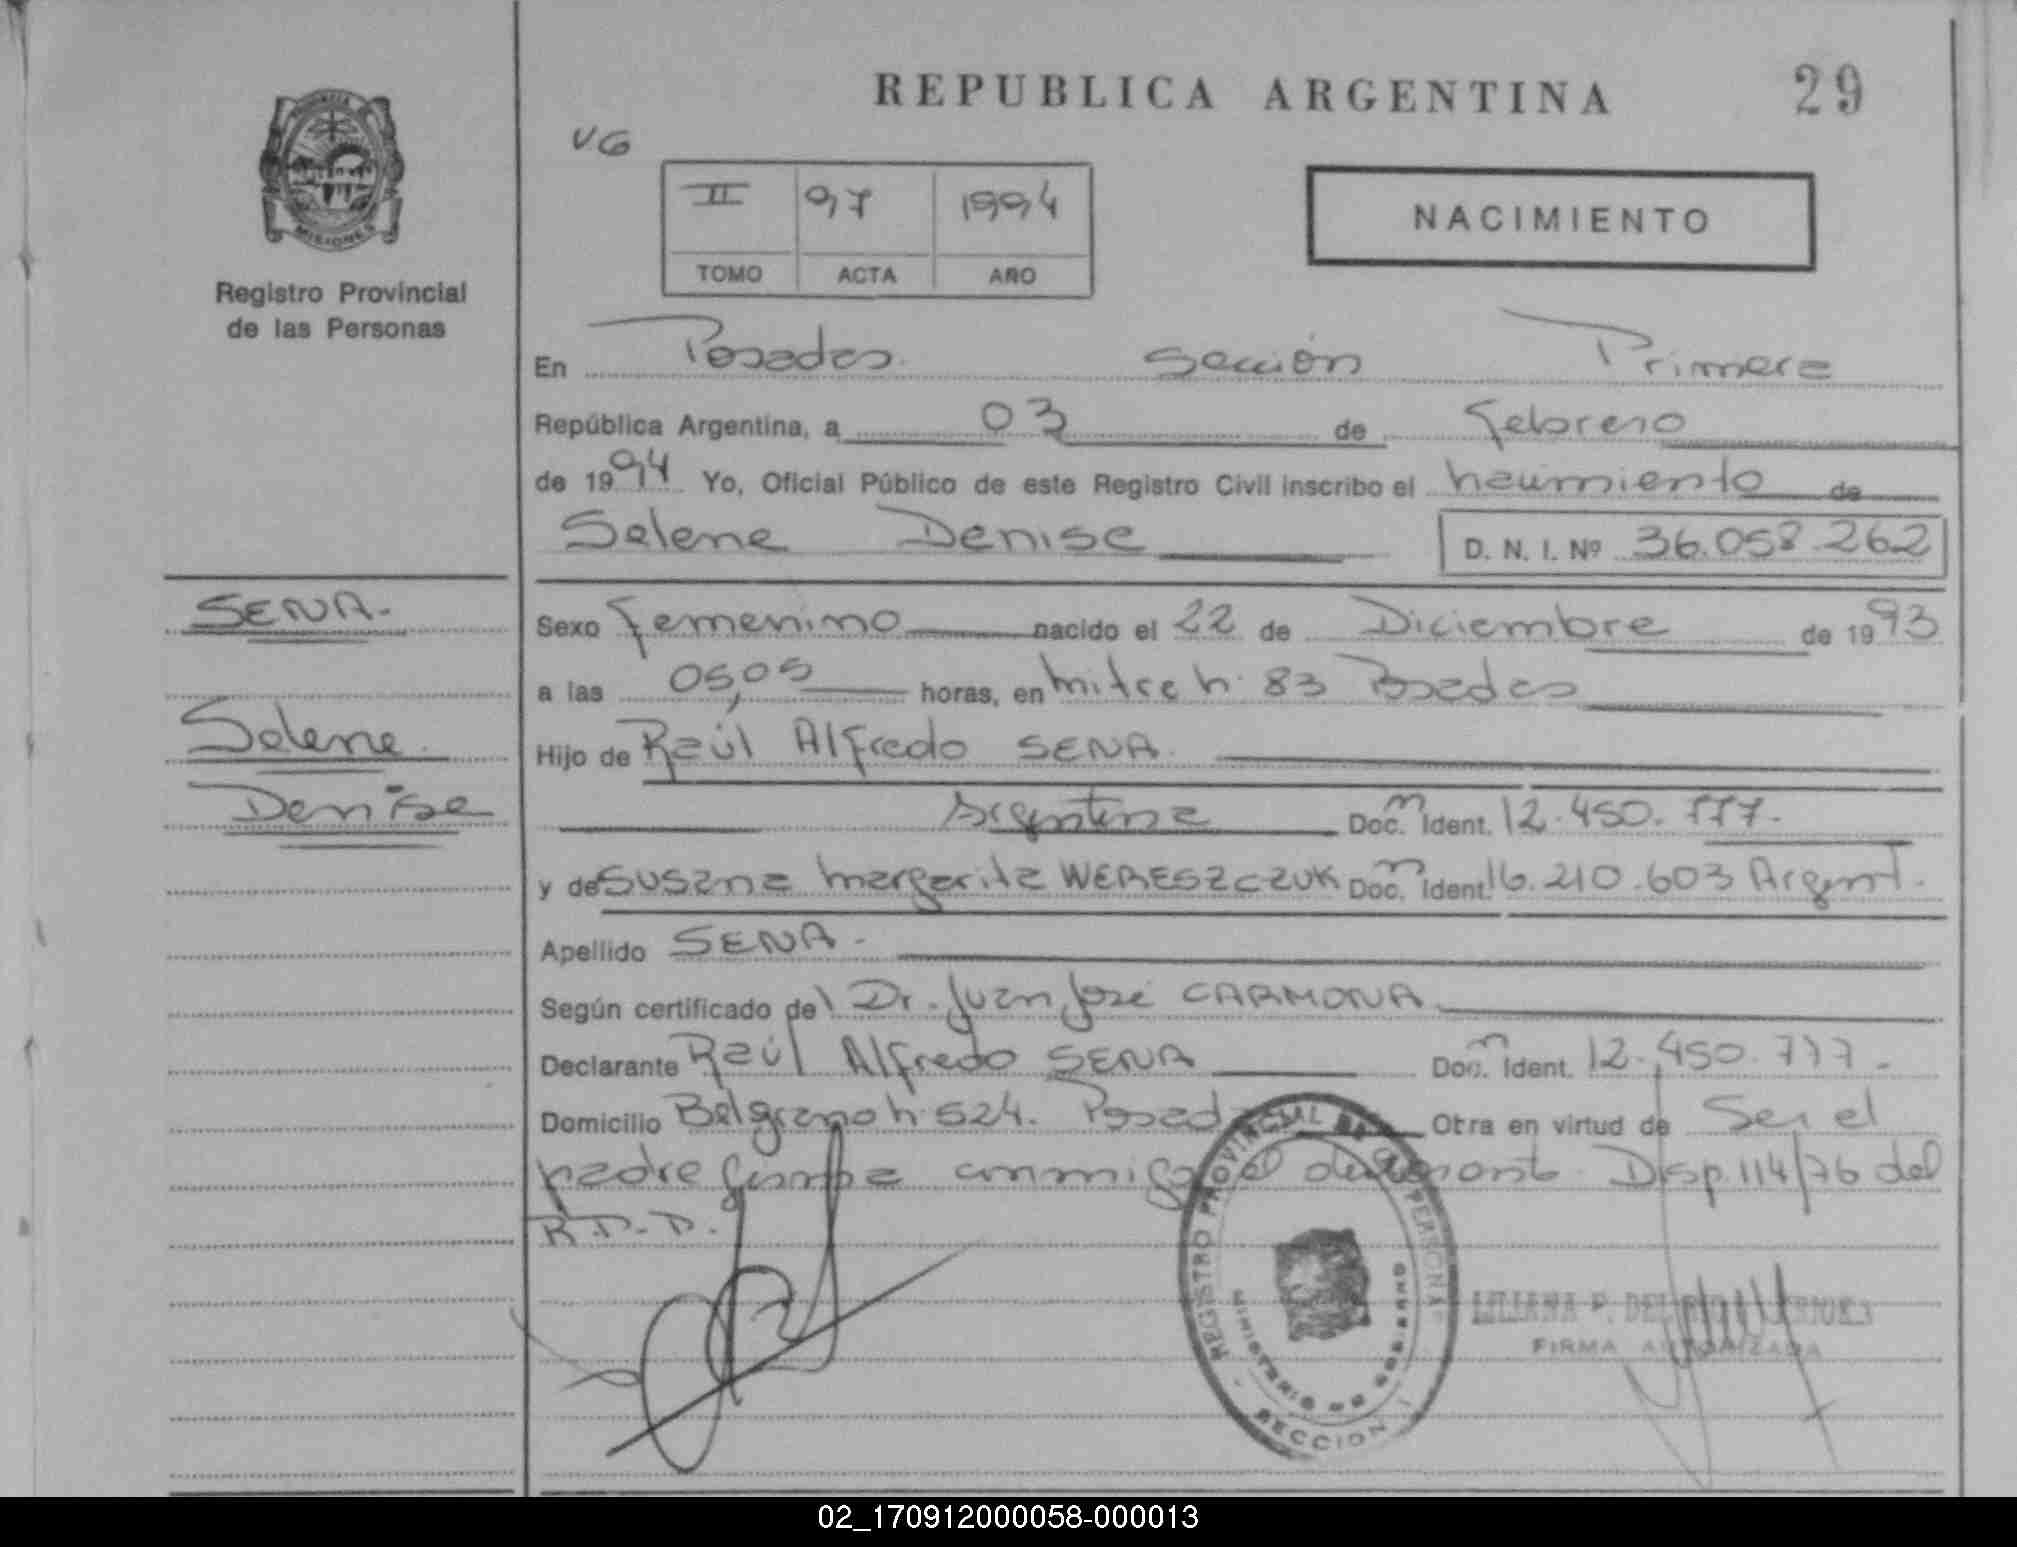 REPUBLICA ARGENTINA
29
VG
II 97 1994
TOMO ACTA AÑO
NACIMIENTO
PROVINCIA
MISIONES
Registro Provincial
de las Personas
En Posadas Sección Primera
República Argentina, a 03 de Febrero
de 1994 Yo, Oficial Público de este Registro Civil inscribo el nacimiento de
Selene Denise D. N. I. Nº 36.058.262
SENA.
Sexo Femenino nacido el 22 de Diciembre de 1993
a las 05,05 horas, en Mitre n. 83 Posadas
Selene
Denise
Hijo de Raúl Alfredo SENA.
Argentina Doc. n Ident. 12.450.777.
y de Susana Margarita WERESZCZUK Doc. n Ident. 16.210.603 Argent.
Apellido SENA.
Según certificado del Dr. Juan José CARMONA
Declarante Raúl Alfredo SENA Doc. n Ident. 12.450.777.
Domicilio Belgrano n. 524. Posadas Otra en virtud de Ser el
padre firma conmigo el declarante. Disp. 114/76 del
R.P.P.
REGISTRO PROVINCIAL DE PERSONAS
MINISTERIO DE GOBIERNO
SECCION 1
LILIANA P. DEL
FIRMA AUTORIZADA
02_170912000058-000013